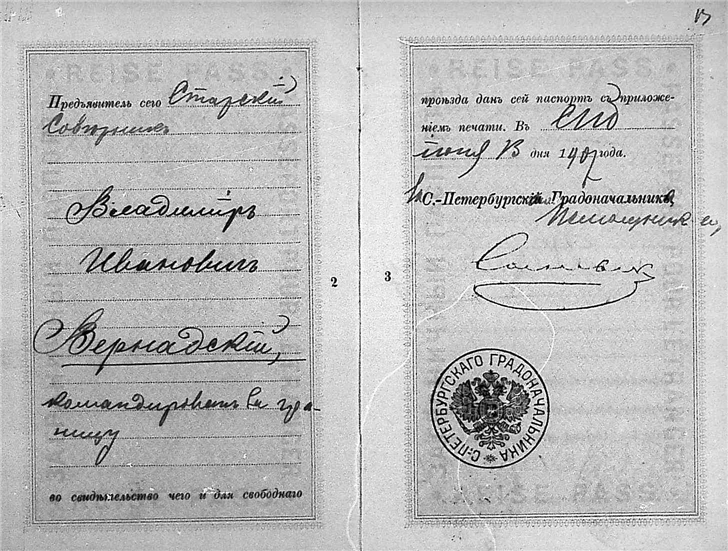 REISE PASS
Предъявитель сего Статскій
Совѣтникъ
Владиміръ
Ивановичъ
Вернадскій,
командированъ за гра-
ницу
во свидѣтельство чего и для свободнаго
2
REISE PASS
проѣзда данъ сей паспортъ съ приложе-
ніемъ печати. Въ СПб
іюня 13 дня 1907 года.
За С.-Петербургскаго Градоначальника,
Помощникъ его,
3
С-ПЕТЕРБУРГСКАГО ГРАДОНАЧАЛЬНИКА
REISE PASS